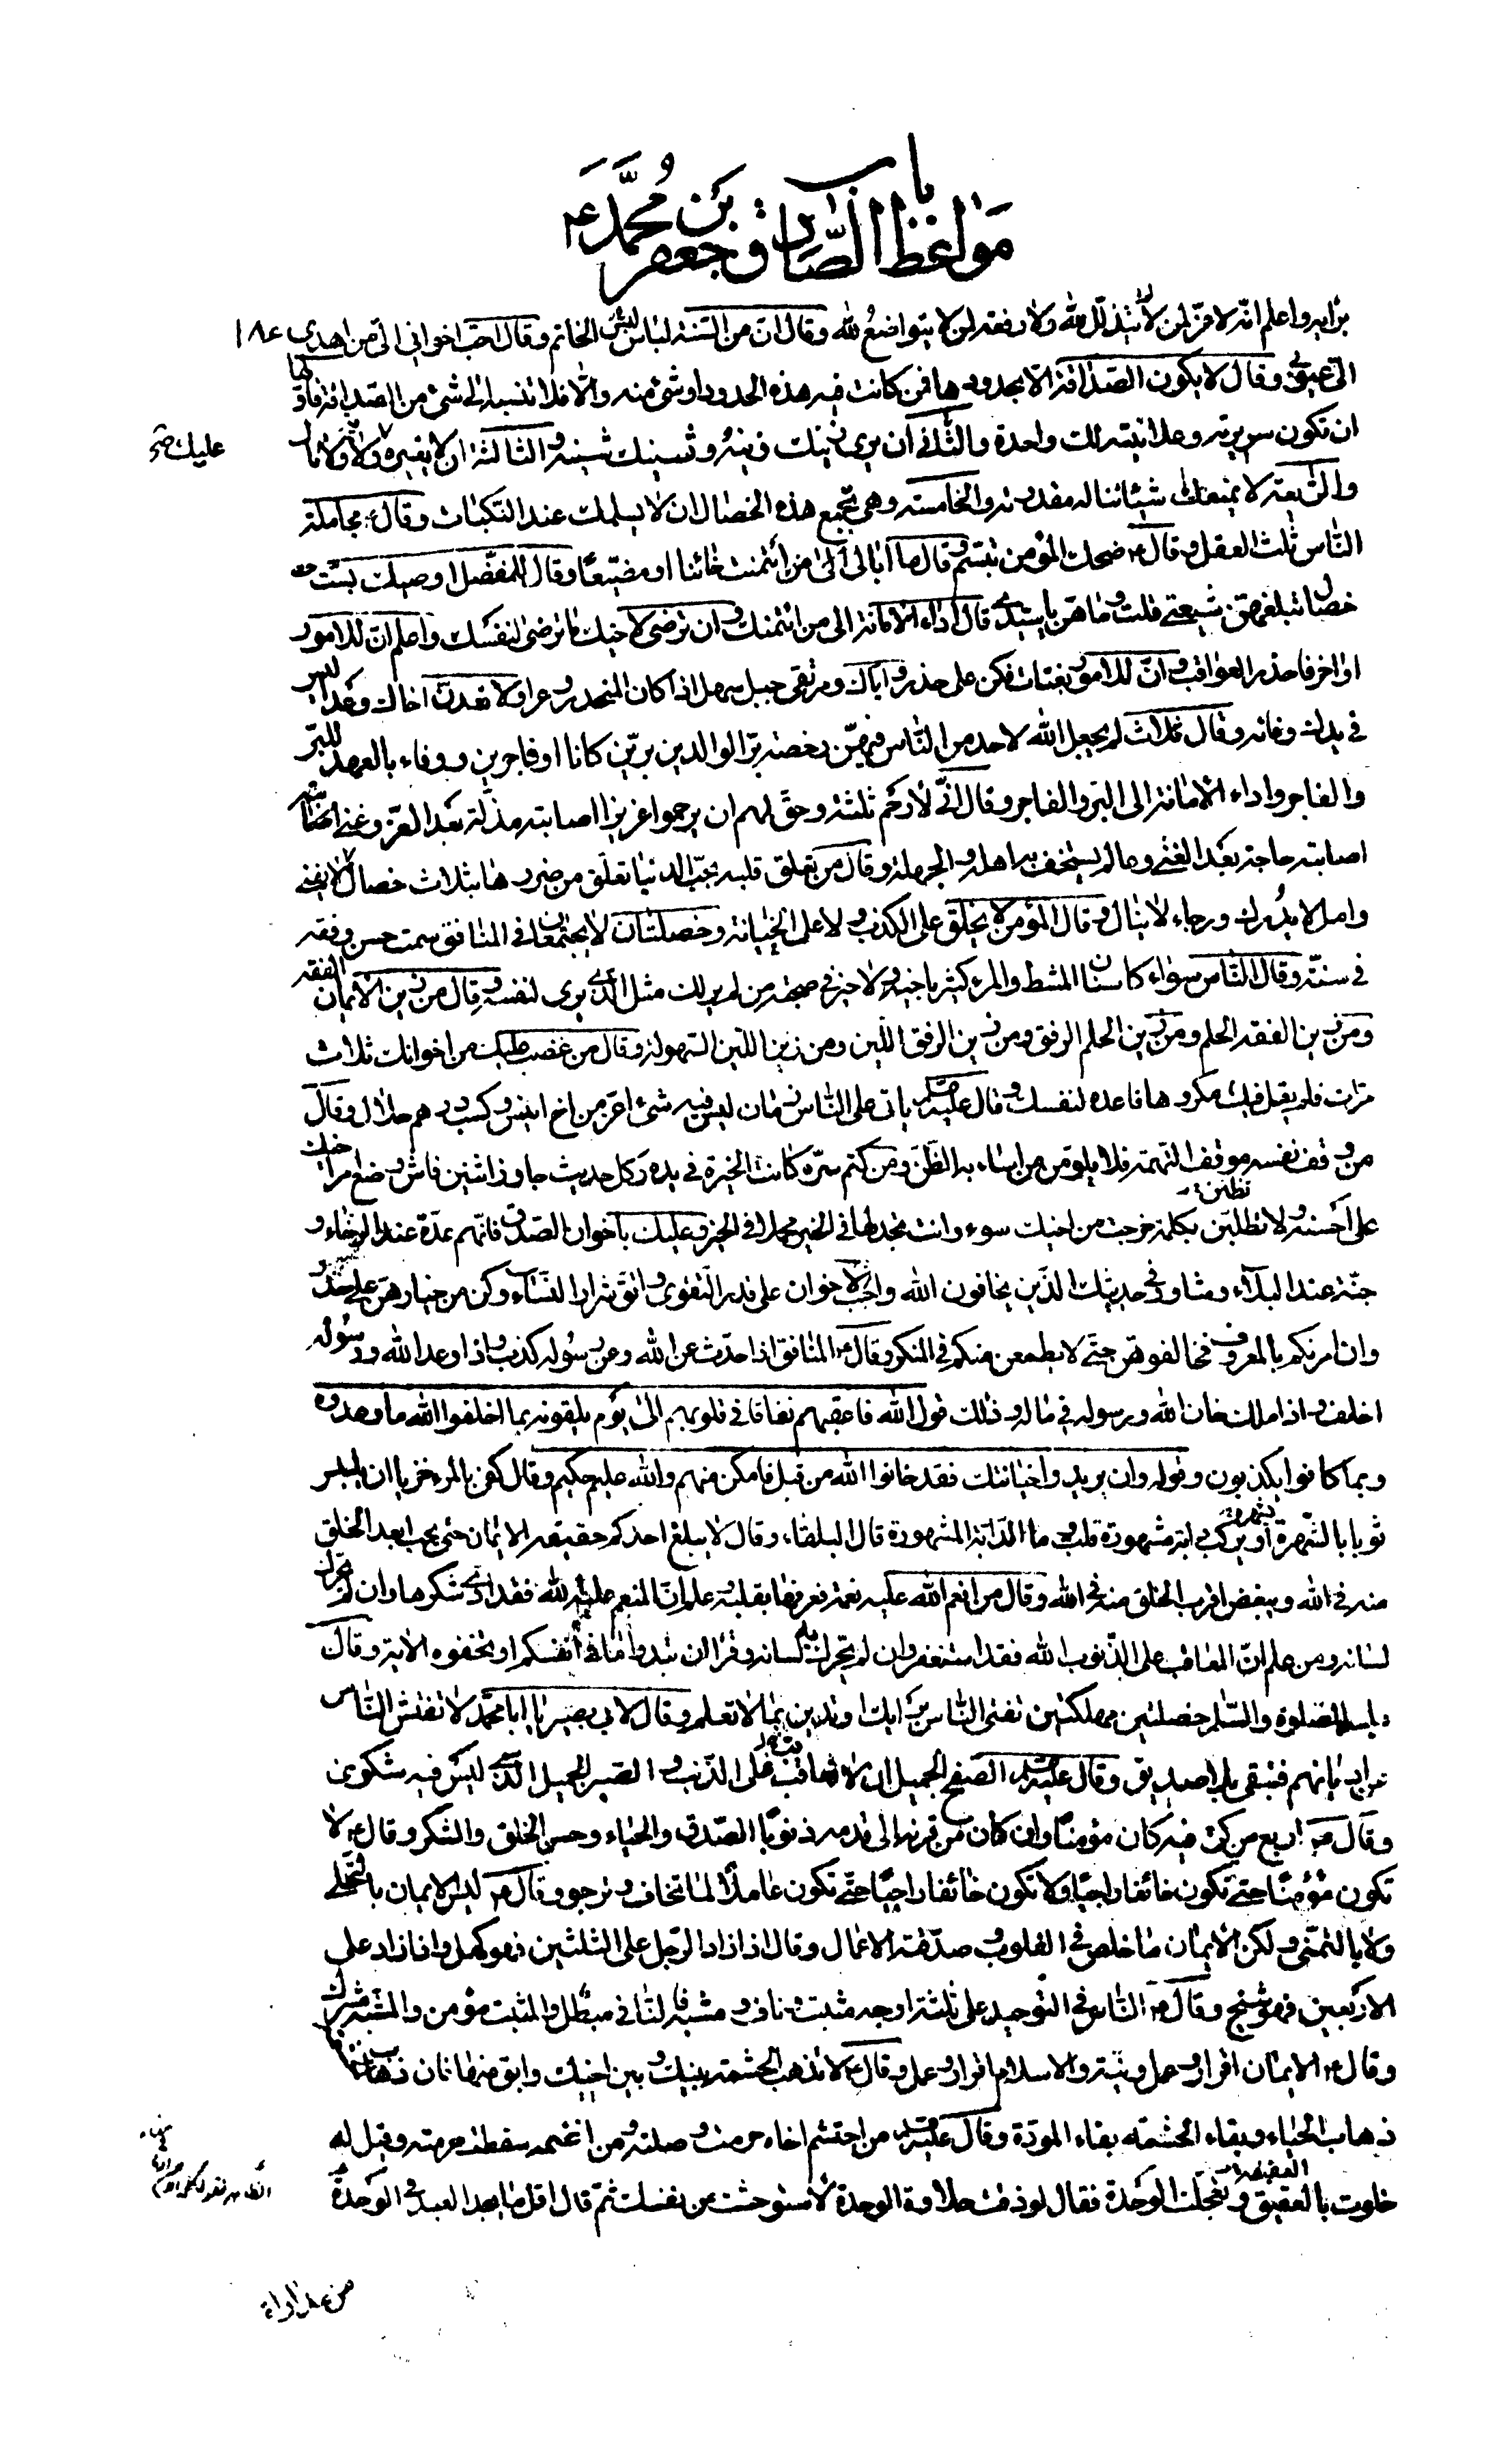 باب
مواعظ الصادق جعفر بن محمد ع
برأيه واعلم انه لا عز لمن لا يتذلل لله ولا رفعة لمن لا يتواضع لله وقال ان من السنة لباس الخاتم وقال احب اخواني الى من اهدى
الى عيوبي وقال لا يكون الصداقة الا بحدودها فمن كانت فيه هذه الحدود او شئ منه والا فلا تنسبه الى شئ من الصداقة فاولها
ان تكون سريرته وعلانيته لك واحدة والثاني ان يرى زينك زينه وشينك شينه والثالثة ان لا يغيره ولاية ولا مال
والرابعة لا يمنعك شيئا تناله مقدرته والخامسة وهي تجمع هذه الخصال ان لا يسلمك عند النكبات وقال ع مجاملة
الناس ثلث العقل وقال ع ضحك المؤمن تبسم وقال ما ابالى الى من ائتمنت خائنا او مضيعا وقال للمفضل اوصيك بست
خصال تبلغهن شيعتي قلت وما هن يا سيدي قال اداء الامانة الى من ائتمنك وان ترضى لاخيك ما ترضى لنفسك واعلم ان للامور
اواخر فاحذر العواقب وان للامور بغتات فكن على حذر واياك ومرتقى جبل سهل اذا كان المنحدر وعرا ولا تعدن اخاك وعدا ليس
في يدك وفائه وقال ثلاث لم يجعل الله لاحد من الناس فيهن رخصة بر الوالدين برين كانا او فاجرين ووفاء بالعهد للبر
والفاجر واداء الامانة الى البر والفاجر وقال اني لارحم ثلثة وحق لهم ان يرحموا عزيز اصابته مذلة بعد العز وغني
اصابته حاجة بعد الغنى وعالم يستخف به اهله والجهلة وقال من تعلق قلبه بحب الدنيا تعلق من ضررها بثلاث خصال لا يفنى
وامل لا يدرك ورجاء لا ينال وقال المؤمن لا يخلق على الكذب ولا على الخيانة وخصلتان لا يجتمعان في المنافق سمت حسن وفقه
في سنة وقال الناس سواء كاسنان المشط والمرء كثير باخيه ولا خير في صحبة من لم ير لك مثل الذي يرى لنفسه وقال من زين الايمان الفقه
ومن زين الفقه الحلم ومن زين الحلم الرفق ومن زين الرفق اللين ومن زين اللين السهولة وقال من غضب عليك من اخوانك ثلاث
مرات فلم يقل فيك مكروها فاعده لنفسك وقال عليه السلم ياتي على الناس زمان ليس فيه شئ اعز من اخ انيس وكسب درهم حلال وقال
من وقف نفسه موقف التهمة فلا يلومن من اساء به الظن ومن كتم سره كانت الخيرة في يده وكل حديث جاوز اثنين فاش وضع امر اخيك
على احسنه ولا تطلبن بكلمة خرجت من اخيك سوء وانت تجد لها في الخير محملا وعليك باخوان الصدق فانهم عدة عند الرخاء و
جنة عند البلاء وشاور في حديثك الذين يخافون الله واحبب الاخوان على قدر التقوى واتق شرار النساء وكن من خيارهن على حذر
وان امرنكم بالمعروف فخالفوهن حتى لا يطمعن منكم في المنكر وقال ع المنافق اذا حدث عن الله وعن رسوله كذب واذا وعد الله ورسوله
اخلف واذا ملك خان الله ورسوله في ماله وذلك قول الله فاعقبهم نفاقا في قلوبهم الى يوم يلقونه بما اخلفوا الله ما وعدوه
وبما كانوا يكذبون وقوله وان يريدوا خيانتك فقد خانوا الله من قبل فامكن منهم والله عليم حكيم وقال كفى بالمرء خزيا ان يلبس
ثوبا بالشهرة او يركب دابة مشهورة قلت وما الدابة المشهورة قال البلقاء وقال لا يبلغ احدكم حقيقة الايمان حتى يحب ابعد الخلق
منه في الله ويبغض اقرب الخلق منه في الله وقال من انعم الله عليه نعمة فعرفها بقلبه وعلم ان المنعم عليه الله فقد ادى شكرها وان لم يحرك
لسانه ومن علم ان المعاقب على الذنوب الله فقد استغفر وان لم يحرك به لسانه وقرأ ان تبدوا ما في انفسكم او تخفوه الآية وقال
عليه الصلوة والسلم خصلتين مهلكتين تفتى الناس برأيك او تدين بما لا تعلم وقال لابي بصير يا ابا محمد لا تفتش الناس
عن اديانهم فتبقى بلا صديق وقال عليه السلم الصفح الجميل ان لا تعاقب على الذنب والصبر الجميل الذي ليس فيه شكوى
وقال ع اربع من كن فيه كان مؤمنا وان كان من قرنه الى قدمه ذنوبا الصدق والحياء وحسن الخلق والشكر وقال ع لا
تكون مؤمنا حتى تكون خائفا راجيا ولا تكون خائفا راجيا حتى تكون عاملا لما تخاف وترجو وقال ع ليس الايمان بالتحلي
ولا بالتمني ولكن الايمان ما خلص في القلوب وصدقته الاعمال وقال اذا زاد الرجل على الثلثين فهو كهل واذا زاد على
الاربعين فهو شيخ وقال ع الناس في التوحيد على ثلثة اوجه مثبت وناف ومشبه فالنافي مبطل والمثبت مؤمن والمشبه مشرك
وقال ع الايمان اقرار وعمل ونية والاسلام اقرار وعمل وقال ع لا تذهب الحشمة بينك وبين اخيك وابق منها فان ذهاب
ذهاب الحياء وبقاء الحشمة بقاء المودة وقال عليه السلم من احتشم اخاه حرمت وصلته ومن اغتمه سقطت حرمته وقيل له
خلوت بالعقيق وتعجلت الوحدة فقال لو ذقت حلاوة الوحدة لاستوحشت من نفسك ثم قال اقل ما يجد العبد في الوحدة